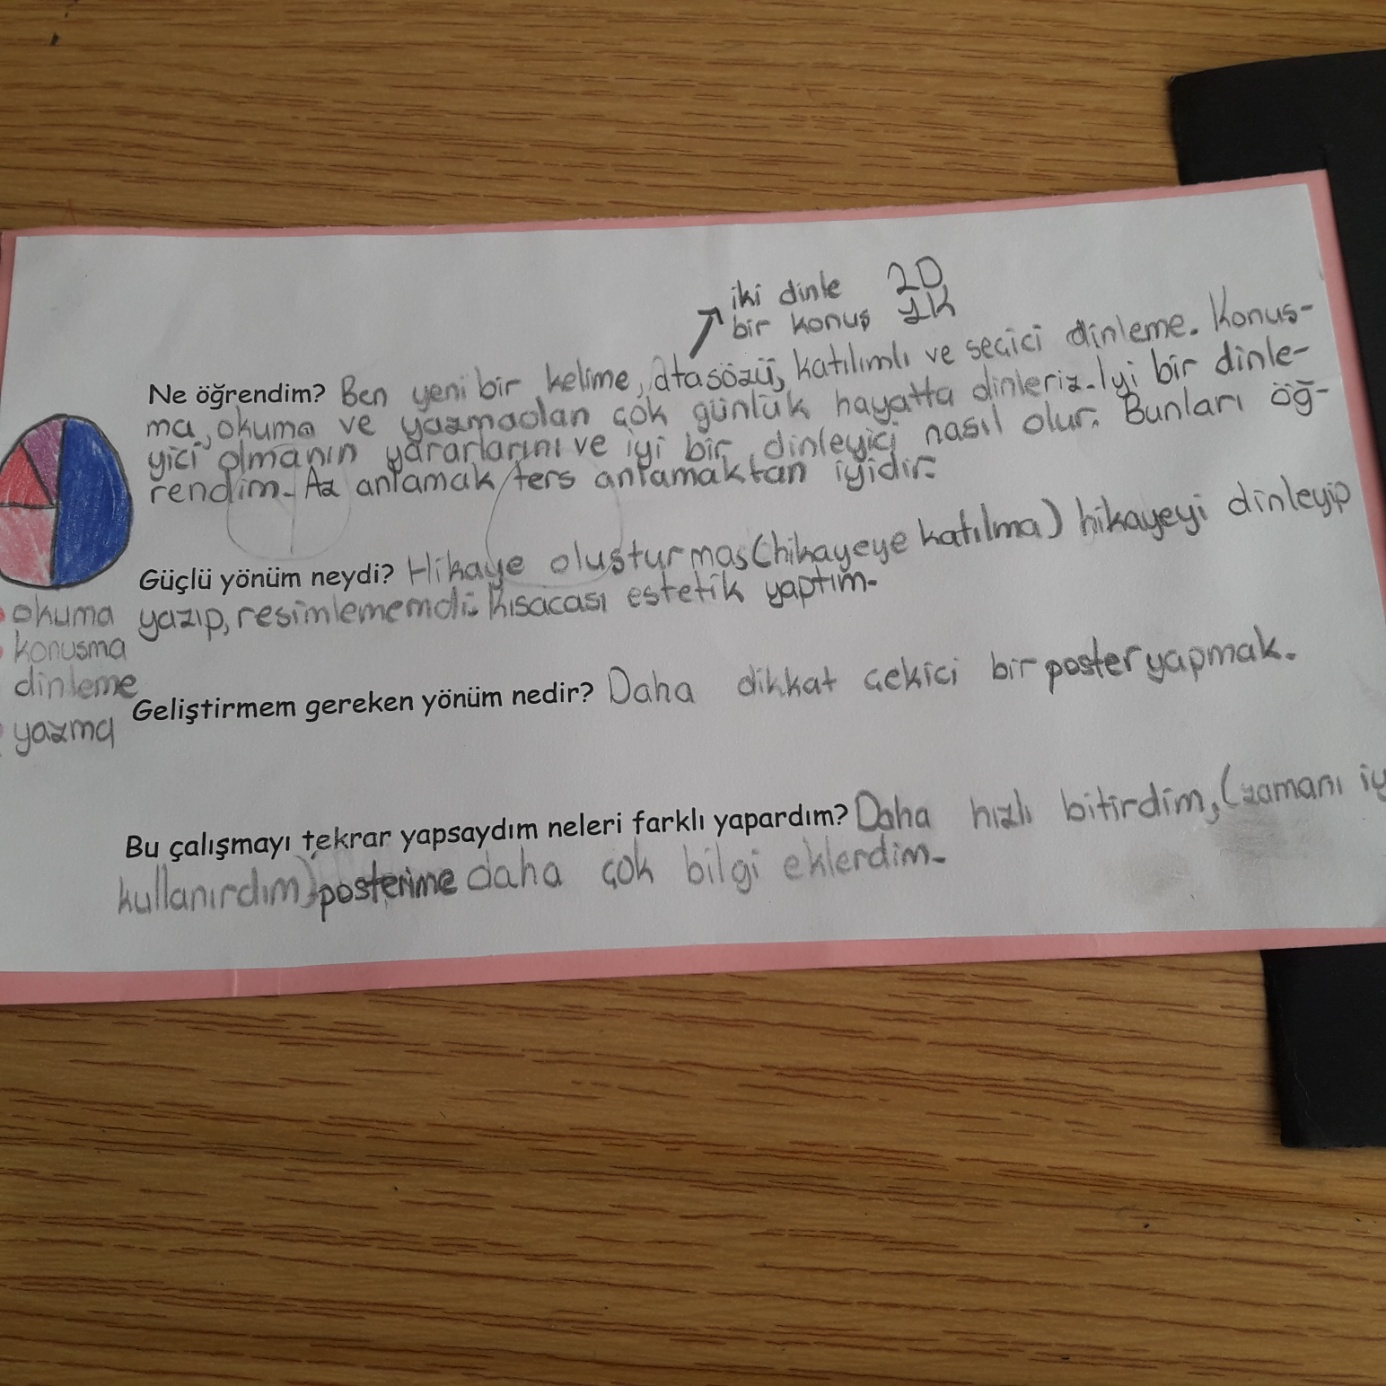 iki dinle 2D
bir konuş 1K
Ne öğrendim? Ben yeni bir kelime, atasözü, katılımlı ve seçici dinleme. Konuş-
ma, okuma ve yazmadan çok günlük hayatta dinleriz. İyi bir dinle-
yici olmanın yararlarını ve iyi bir dinleyici nasıl olur. Bunları öğ-
rendim. Az anlamak ters anlamaktan iyidir.
Güçlü yönüm neydi? Hikaye oluşturmas (hikayeye katılma) hikayeyi dinleyip
yazıp, resimlememdi. Kısacası estetik yaptım.
okuma
konusma
dinleme
yazma
Geliştirmem gereken yönüm nedir? Daha dikkat çekici bir poster yapmak.
Bu çalışmayı tekrar yapsaydım neleri farklı yapardım? Daha hızlı bitirdim, (zamanı iy
kullanırdım) posterime daha çok bilgi eklerdim.